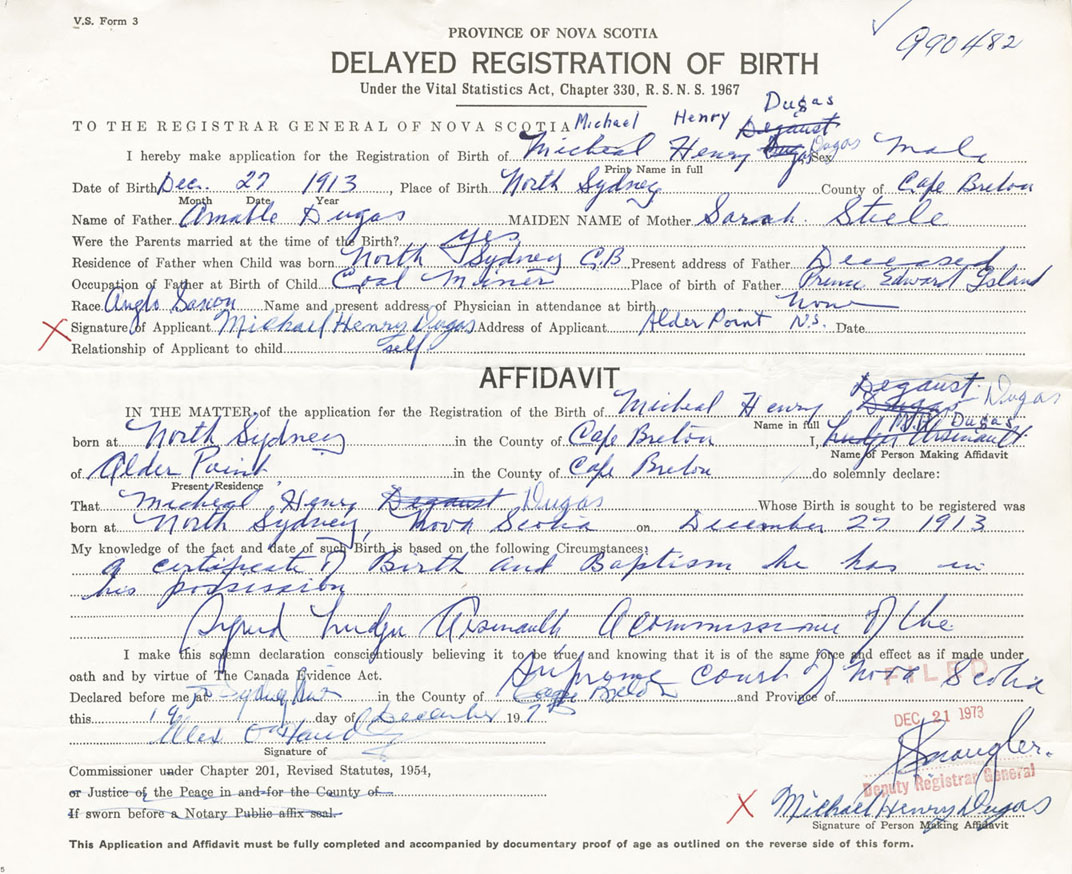 V.S. Form 3
990482
PROVINCE OF NOVA SCOTIA
DELAYED REGISTRATION OF BIRTH
Under the Vital Statistics Act, Chapter 330, R. S. N. S. 1967
Dugas
TO THE REGISTRAR GENERAL OF NOVA SCOTIA Michael Henry Degaust
I hereby make application for the Registration of Birth of Micheal Henry Dugas Dugas Sex Male
Print Name in full
Date of Birth Dec. 27 1913, Place of Birth North Sydney County of Cape Breton
Month Date Year
Name of Father Amable Dugas MAIDEN NAME of Mother Sarah Steele
Were the Parents married at the time of the Birth? yes
Residence of Father when Child was born North Sydney C.B. Present address of Father Deceased
Occupation of Father at Birth of Child Coal Meiner Place of birth of Father Prince Edward Island
Race Anglo Saxon Name and present address of Physician in attendance at birth none
X Signature of Applicant Michael Henry Dugas Address of Applicant Alder Point N.S. Date
Relationship of Applicant to child self
AFFIDAVIT
Degaust Dugas
IN THE MATTER of the application for the Registration of the Birth of Micheal Henry Dugas
Name in full M.H. Dugas
born at North Sydney in the County of Cape Breton I, Arsenault
Name of Person Making Affidavit
of Alder Point in the County of Cape Breton do solemnly declare:
Present Residence
That Micheal Henry Degaust Dugas Whose Birth is sought to be registered was
born at North Sydney, Nova Scotia on December 27 1913
My knowledge of the fact and date of such Birth is based on the following Circumstances:
A certificate of Birth and Baptism he has in
his possession
Signed Arsenault A commissioner of the
I make this solemn declaration conscientiously believing it to be true, and knowing that it is of the same force and effect as if made under
oath and by virtue of The Canada Evidence Act. Supreme court of Nova Scotia
FILED
Declared before me at Sydney in the County of Cape Breton and Province of
this 19 day of December 197
DEC 21 1973
Signature of
Commissioner under Chapter 201, Revised Statutes, 1954,
Deputy Registrar General
or Justice of the Peace in and for the County of
If sworn before a Notary Public affix seal.
X Michael Henry Dugas
Signature of Person Making Affidavit
This Application and Affidavit must be fully completed and accompanied by documentary proof of age as outlined on the reverse side of this form.
5